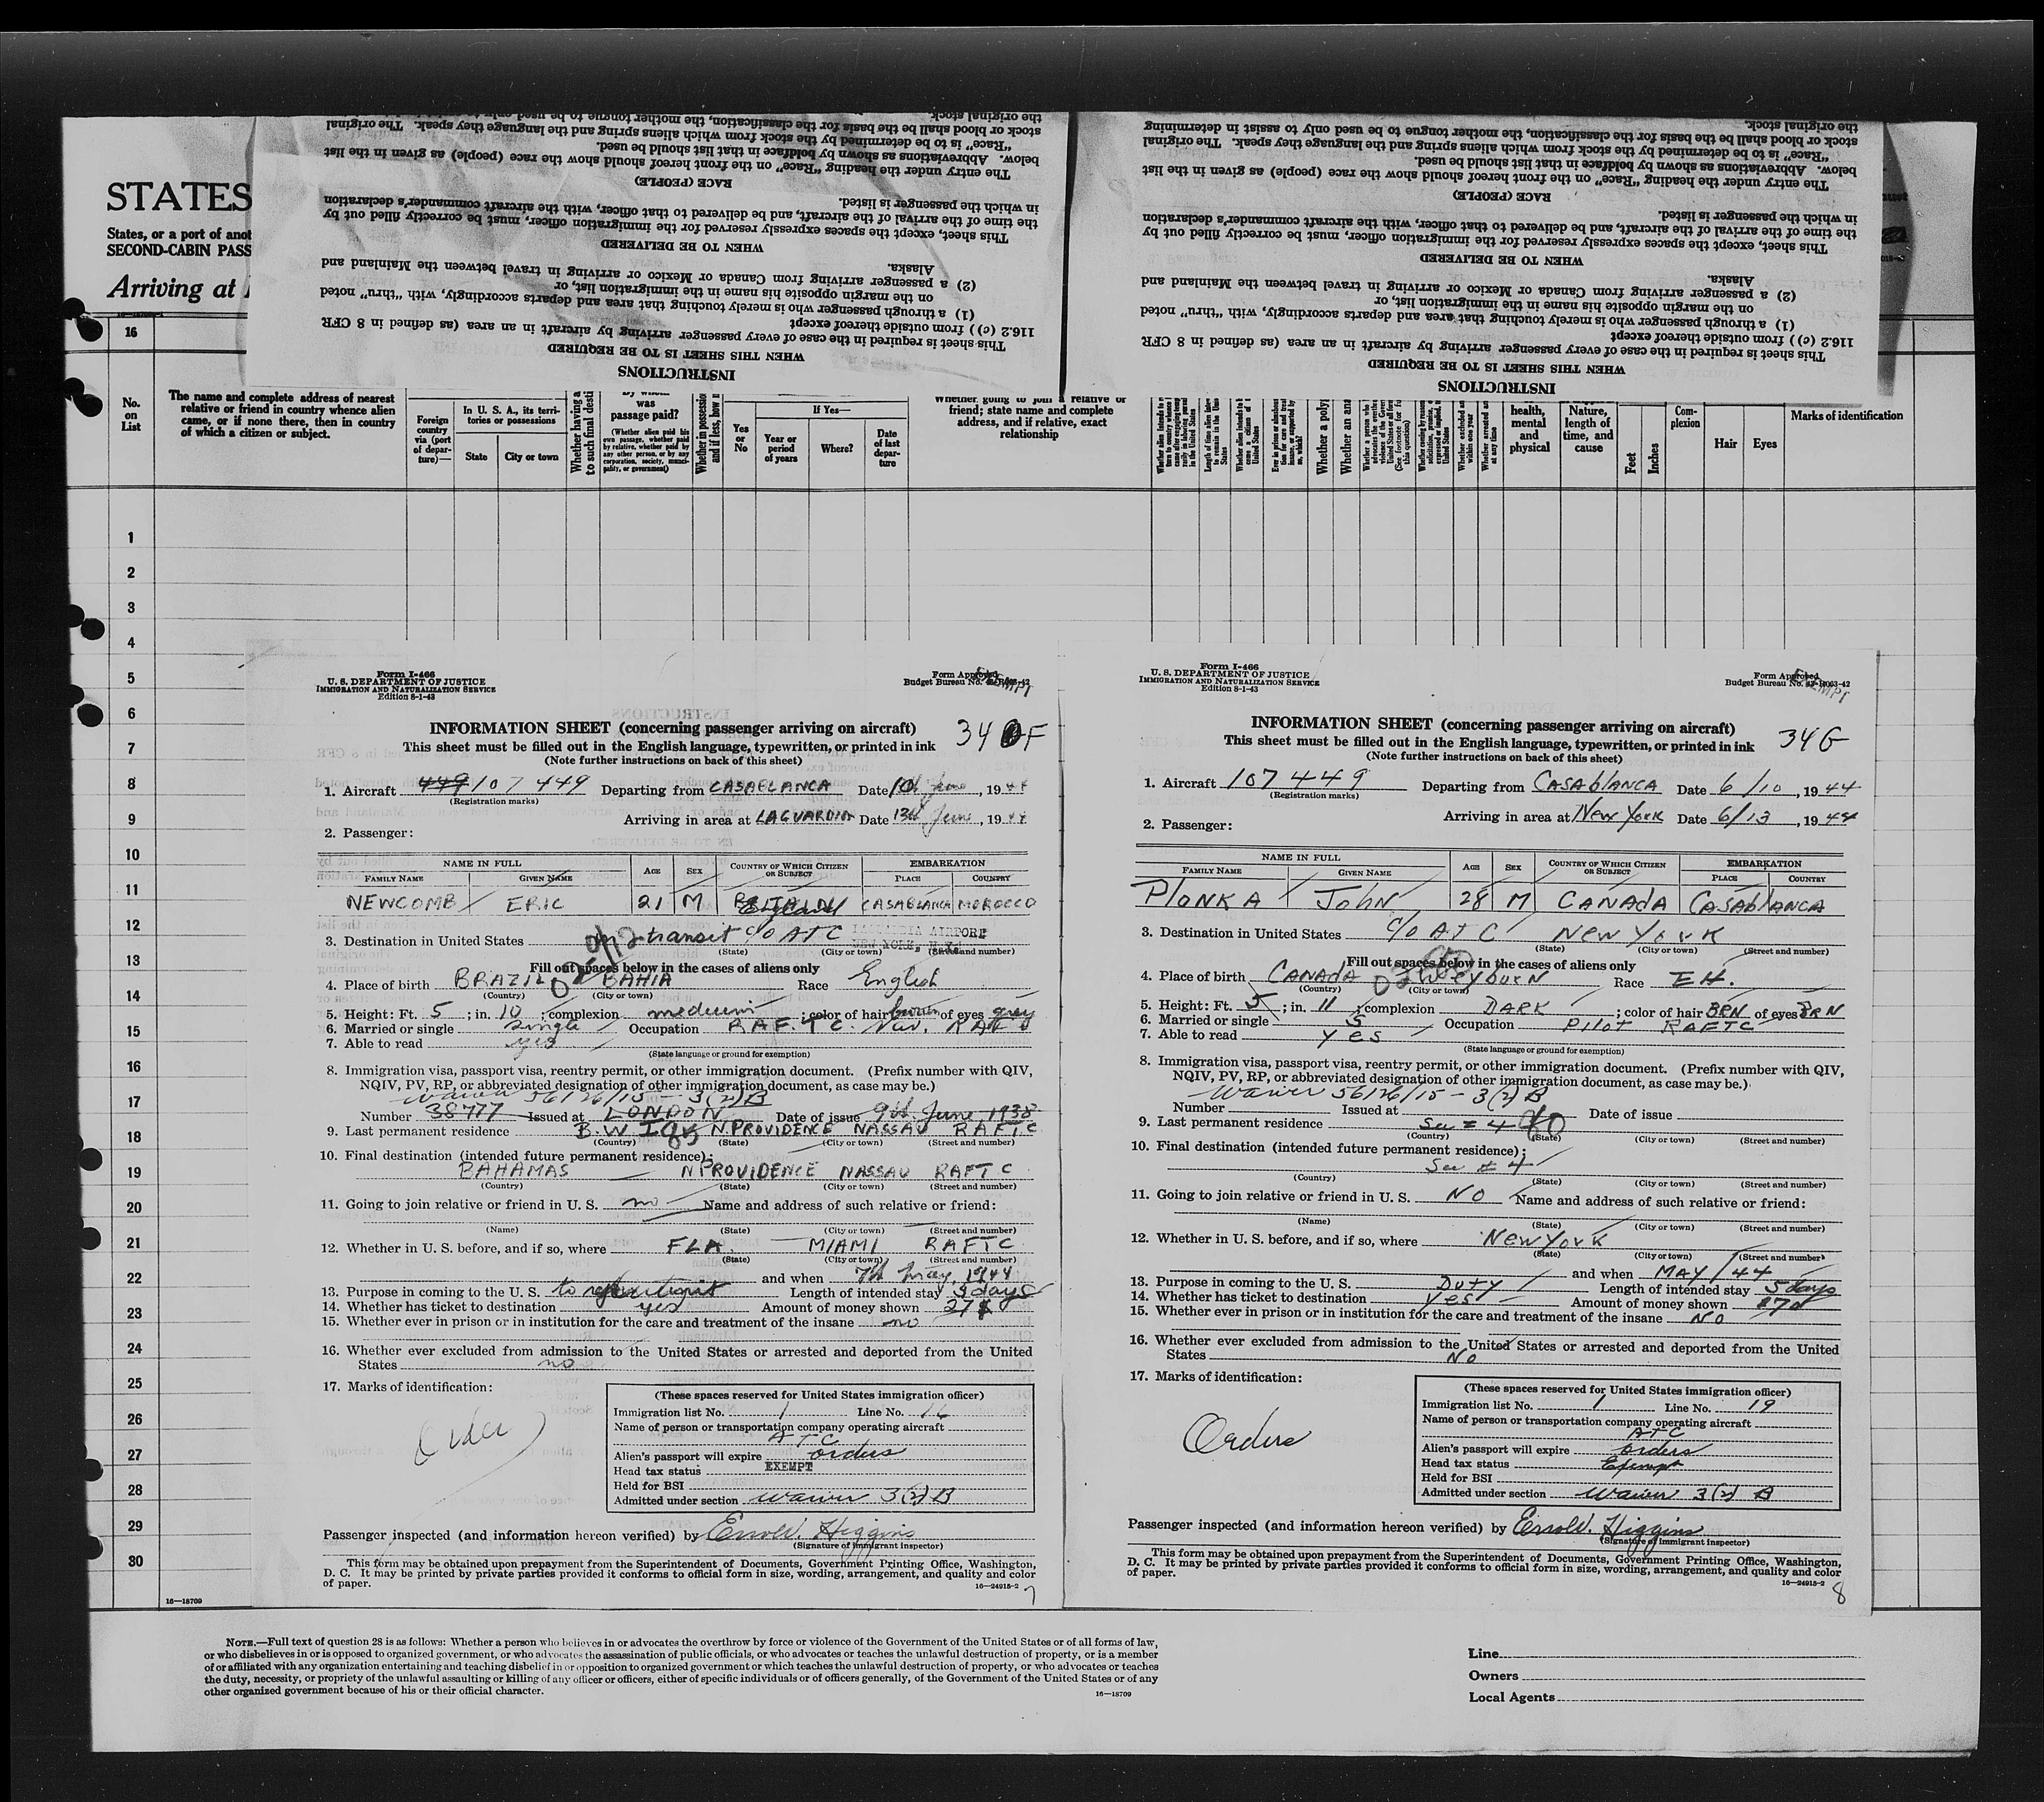 STATES
States, or a port of anot
SECOND-CABIN PASS
Arriving at
the original stock.
stock or blood shall be the basis for the classification, the mother tongue to be used only to
"Race" is to be determined by the stock from which aliens spring and the language they speak. The original
below. Abbreviations as shown by boldface in that list should be used.
The entry under the heading "Race" on the front hereof should show the race (people) as given in the list
RACE (PEOPLE)
in which the passenger is listed.
the time of the arrival of the aircraft, and be delivered to that officer, with the aircraft commander's declaration
This sheet, except the spaces expressly reserved for the immigration officer, must be correctly filled out by
WHEN TO BE DELIVERED
Alaska.
(2) a passenger arriving from Canada or Mexico or arriving in travel between the Mainland and
on the margin opposite his name in the immigration list, or
(1) a through passenger who is merely touching that area and departs accordingly, with "thru" noted
116.2 (c) ) from outside thereof except
This sheet is required in the case of every passenger arriving by aircraft in an area (as defined in 8 CFR
WHEN THIS SHEET IS TO BE REQUIRED
INSTRUCTIONS
the original stock.
stock or blood shall be the basis for the classification, the mother tongue to be used only to assist in determining
"Race" is to be determined by the stock from which aliens spring and the language they speak. The original
below. Abbreviations as shown by boldface in that list should be used.
The entry under the heading "Race" on the front hereof should show the race (people) as given in the list
RACE (PEOPLE)
in which the passenger is listed.
the time of the arrival of the aircraft, and be delivered to that officer, with the aircraft commander's declaration
This sheet, except the spaces expressly reserved for the immigration officer, must be correctly filled out by
WHEN TO BE DELIVERED
Alaska.
(2) a passenger arriving from Canada or Mexico or arriving in travel between the Mainland and
on the margin opposite his name in the immigration list, or
(1) a through passenger who is merely touching that area and departs accordingly, with "thru" noted
116.2 (c) ) from outside thereof except
This sheet is required in the case of every passenger arriving by aircraft in an area (as defined in 8 CFR
WHEN THIS SHEET IS TO BE REQUIRED
INSTRUCTIONS
16
No. on List
The name and complete address of nearest
relative or friend in country whence alien
came, or if none there, then in country
of which a citizen or subject.
Foreign country via (port of departure)—
In U. S. A., its territories or possessions
State
City or town
Whether having a
to such final desti
was passage paid?
(Whether alien paid his own passage, whether paid by any other person, or by any corporation, society, municipality, or government)
Whether in possession
and if less, how
Yes or No
If Yes—
Year or period of years
Where?
Date of last departure
Whether going to join a relative or
friend; state name and complete
address, and if relative, exact
relationship
Whether a poly
Whether an ana
health, mental and physical
Nature, length of time, and cause
Feet
Inches
Complexion
Hair
Eyes
Marks of identification
1
2
3
4
5
6
7
8
9
10
11
12
13
14
15
16
17
18
19
20
21
22
23
24
25
26
27
28
29
30
16—18709
Form I-466
U. S. DEPARTMENT OF JUSTICE
IMMIGRATION AND NATURALIZATION SERVICE
Edition 8-1-43
Form Approved
Budget Bureau No.
EXEMPT
INFORMATION SHEET (concerning passenger arriving on aircraft)
34 F
This sheet must be filled out in the English language, typewritten, or printed in ink
(Note further instructions on back of this sheet)
1. Aircraft 449 107 449 Departing from CASABLANCA Date 10th June, 1944
(Registration marks)
Arriving in area at LAGUARDIA Date 13th June, 1944
2. Passenger:
NAME IN FULL AGE SEX COUNTRY OF WHICH CITIZEN OR SUBJECT EMBARKATION
FAMILY NAME GIVEN NAME PLACE COUNTRY
NEWCOMB ERIC 21 M BRITAIN England CASABLANCA MOROCCO
3. Destination in United States in transit c/o ATC LAGUARDIA AIRPORT NEW YORK, N.Y.
(State) (City or town) (Street and number)
Fill out spaces below in the cases of aliens only
4. Place of birth BRAZIL BAHIA Race English
(Country) (City or town)
5. Height: Ft. 5; in. 10; complexion medium; color of hair brown of eyes grey
6. Married or single single Occupation R.A.F.T.C. Nav.
7. Able to read yes
(State language or ground for exemption)
8. Immigration visa, passport visa, reentry permit, or other immigration document. (Prefix number with QIV,
NQIV, PV, RP, or abbreviated designation of other immigration document, as case may be.)
Waiver 56126/15 - 3(2)B
Number 38777 Issued at LONDON Date of issue 9th June, 1938
9. Last permanent residence B.W.I. N.PROVIDENCE NASSAU RAFTC
(Country) (State) (City or town) (Street and number)
10. Final destination (intended future permanent residence):
BAHAMAS N PROVIDENCE NASSAU RAFTC
(Country) (State) (City or town) (Street and number)
11. Going to join relative or friend in U. S. no Name and address of such relative or friend:
(Name) (State) (City or town) (Street and number)
12. Whether in U. S. before, and if so, where FLA. MIAMI RAFTC
(State) (City or town) (Street and number)
and when 7th May, 1944
13. Purpose in coming to the U. S. transit Length of intended stay 3 days
14. Whether has ticket to destination yes Amount of money shown 27 $
15. Whether ever in prison or in institution for the care and treatment of the insane no
16. Whether ever excluded from admission to the United States or arrested and deported from the United
States no
17. Marks of identification:
Orders
(These spaces reserved for United States immigration officer)
Immigration list No. 1 Line No. 16
Name of person or transportation company operating aircraft
ATC
Alien's passport will expire orders
Head tax status EXEMPT
Held for BSI
Admitted under section waiver 3(2) B
Passenger inspected (and information hereon verified) by Errol W. Higgins
(Signature of immigrant inspector)
This form may be obtained upon prepayment from the Superintendent of Documents, Government Printing Office, Washington,
D. C. It may be printed by private parties provided it conforms to official form in size, wording, arrangement, and quality and color
of paper.
16—24915-2
7
Form I-466
U. S. DEPARTMENT OF JUSTICE
IMMIGRATION AND NATURALIZATION SERVICE
Edition 8-1-43
Form Approved
Budget Bureau No. 43-R063-42
EXEMPT
INFORMATION SHEET (concerning passenger arriving on aircraft)
34 G
This sheet must be filled out in the English language, typewritten, or printed in ink
(Note further instructions on back of this sheet)
1. Aircraft 107449 Departing from CASAblANCA Date 6/10, 1944
(Registration marks)
Arriving in area at New York Date 6/13, 1944
2. Passenger:
NAME IN FULL AGE SEX COUNTRY OF WHICH CITIZEN OR SUBJECT EMBARKATION
FAMILY NAME GIVEN NAME PLACE COUNTRY
PlONKA John 28 M CANAdA CASAblANCA
3. Destination in United States c/o ATC New York
(State) (City or town) (Street and number)
Fill out spaces below in the cases of aliens only
4. Place of birth CANAdA WeyburN Race EH.
(Country) (City or town)
5. Height: Ft. 5; in. 11; complexion DARK; color of hair BRN of eyes BRN
6. Married or single S Occupation Pilot RAFTC
7. Able to read yes
(State language or ground for exemption)
8. Immigration visa, passport visa, reentry permit, or other immigration document. (Prefix number with QIV,
NQIV, PV, RP, or abbreviated designation of other immigration document, as case may be.)
Waiver 56126/15 - 3(2) B
Number Issued at Date of issue
9. Last permanent residence See # 4
(Country) (State) (City or town) (Street and number)
10. Final destination (intended future permanent residence):
See # 4
(Country) (State) (City or town) (Street and number)
11. Going to join relative or friend in U. S. NO Name and address of such relative or friend:
(Name) (State) (City or town) (Street and number)
12. Whether in U. S. before, and if so, where New York
(State) (City or town) (Street and number)
and when MAY/44
13. Purpose in coming to the U. S. Duty Length of intended stay 5 days
14. Whether has ticket to destination yes Amount of money shown
15. Whether ever in prison or in institution for the care and treatment of the insane NO
16. Whether ever excluded from admission to the United States or arrested and deported from the United
States No
17. Marks of identification:
Orders
(These spaces reserved for United States immigration officer)
Immigration list No. 1 Line No. 19
Name of person or transportation company operating aircraft
ATC
Alien's passport will expire orders
Head tax status Exempt
Held for BSI
Admitted under section waiver 3(2) B
Passenger inspected (and information hereon verified) by Errol W. Higgins
(Signature of immigrant inspector)
This form may be obtained upon prepayment from the Superintendent of Documents, Government Printing Office, Washington,
D. C. It may be printed by private parties provided it conforms to official form in size, wording, arrangement, and quality and color
of paper.
16—24915-2
8
NOTE.—Full text of question 28 is as follows: Whether a person who believes in or advocates the overthrow by force or violence of the Government of the United States or of all forms of law,
or who disbelieves in or is opposed to organized government, or who advocates the assassination of public officials, or who advocates or teaches the unlawful destruction of property, or is a member
of or affiliated with any organization entertaining and teaching disbelief in or opposition to organized government or which teaches the unlawful destruction of property, or who advocates or teaches
the duty, necessity, or propriety of the unlawful assaulting or killing of any officer or officers, either of specific individuals or of officers generally, of the Government of the United States or of any
other organized government because of his or their official character.
16—18709
Line
Owners
Local Agents